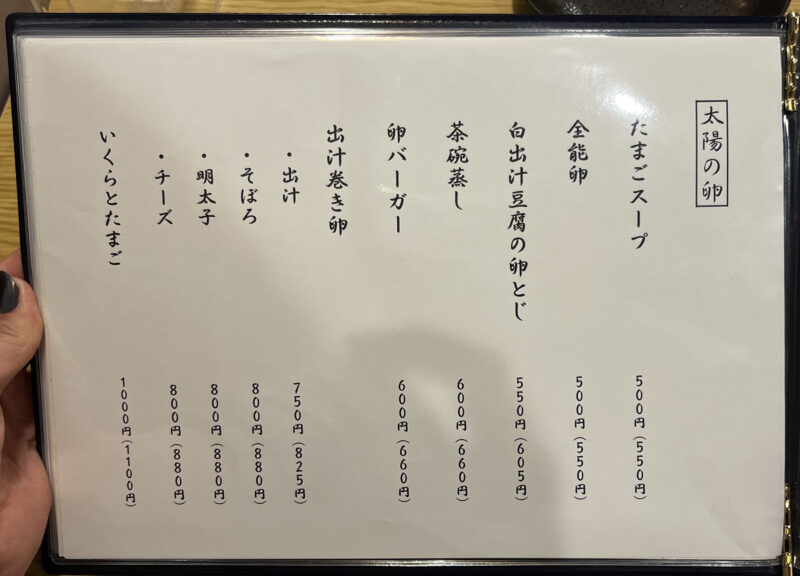 太陽の卵
たまごスープ 500円(550円)
全能卵 500円(550円)
白出汁豆腐の卵とじ 550円(605円)
茶碗蒸し 600円(660円)
卵バーガー 600円(660円)
出汁巻き卵
・出汁 750円(825円)
・そぼろ 800円(880円)
・明太子 800円(880円)
・チーズ 800円(880円)
いくらとたまご 1000円(1100円)